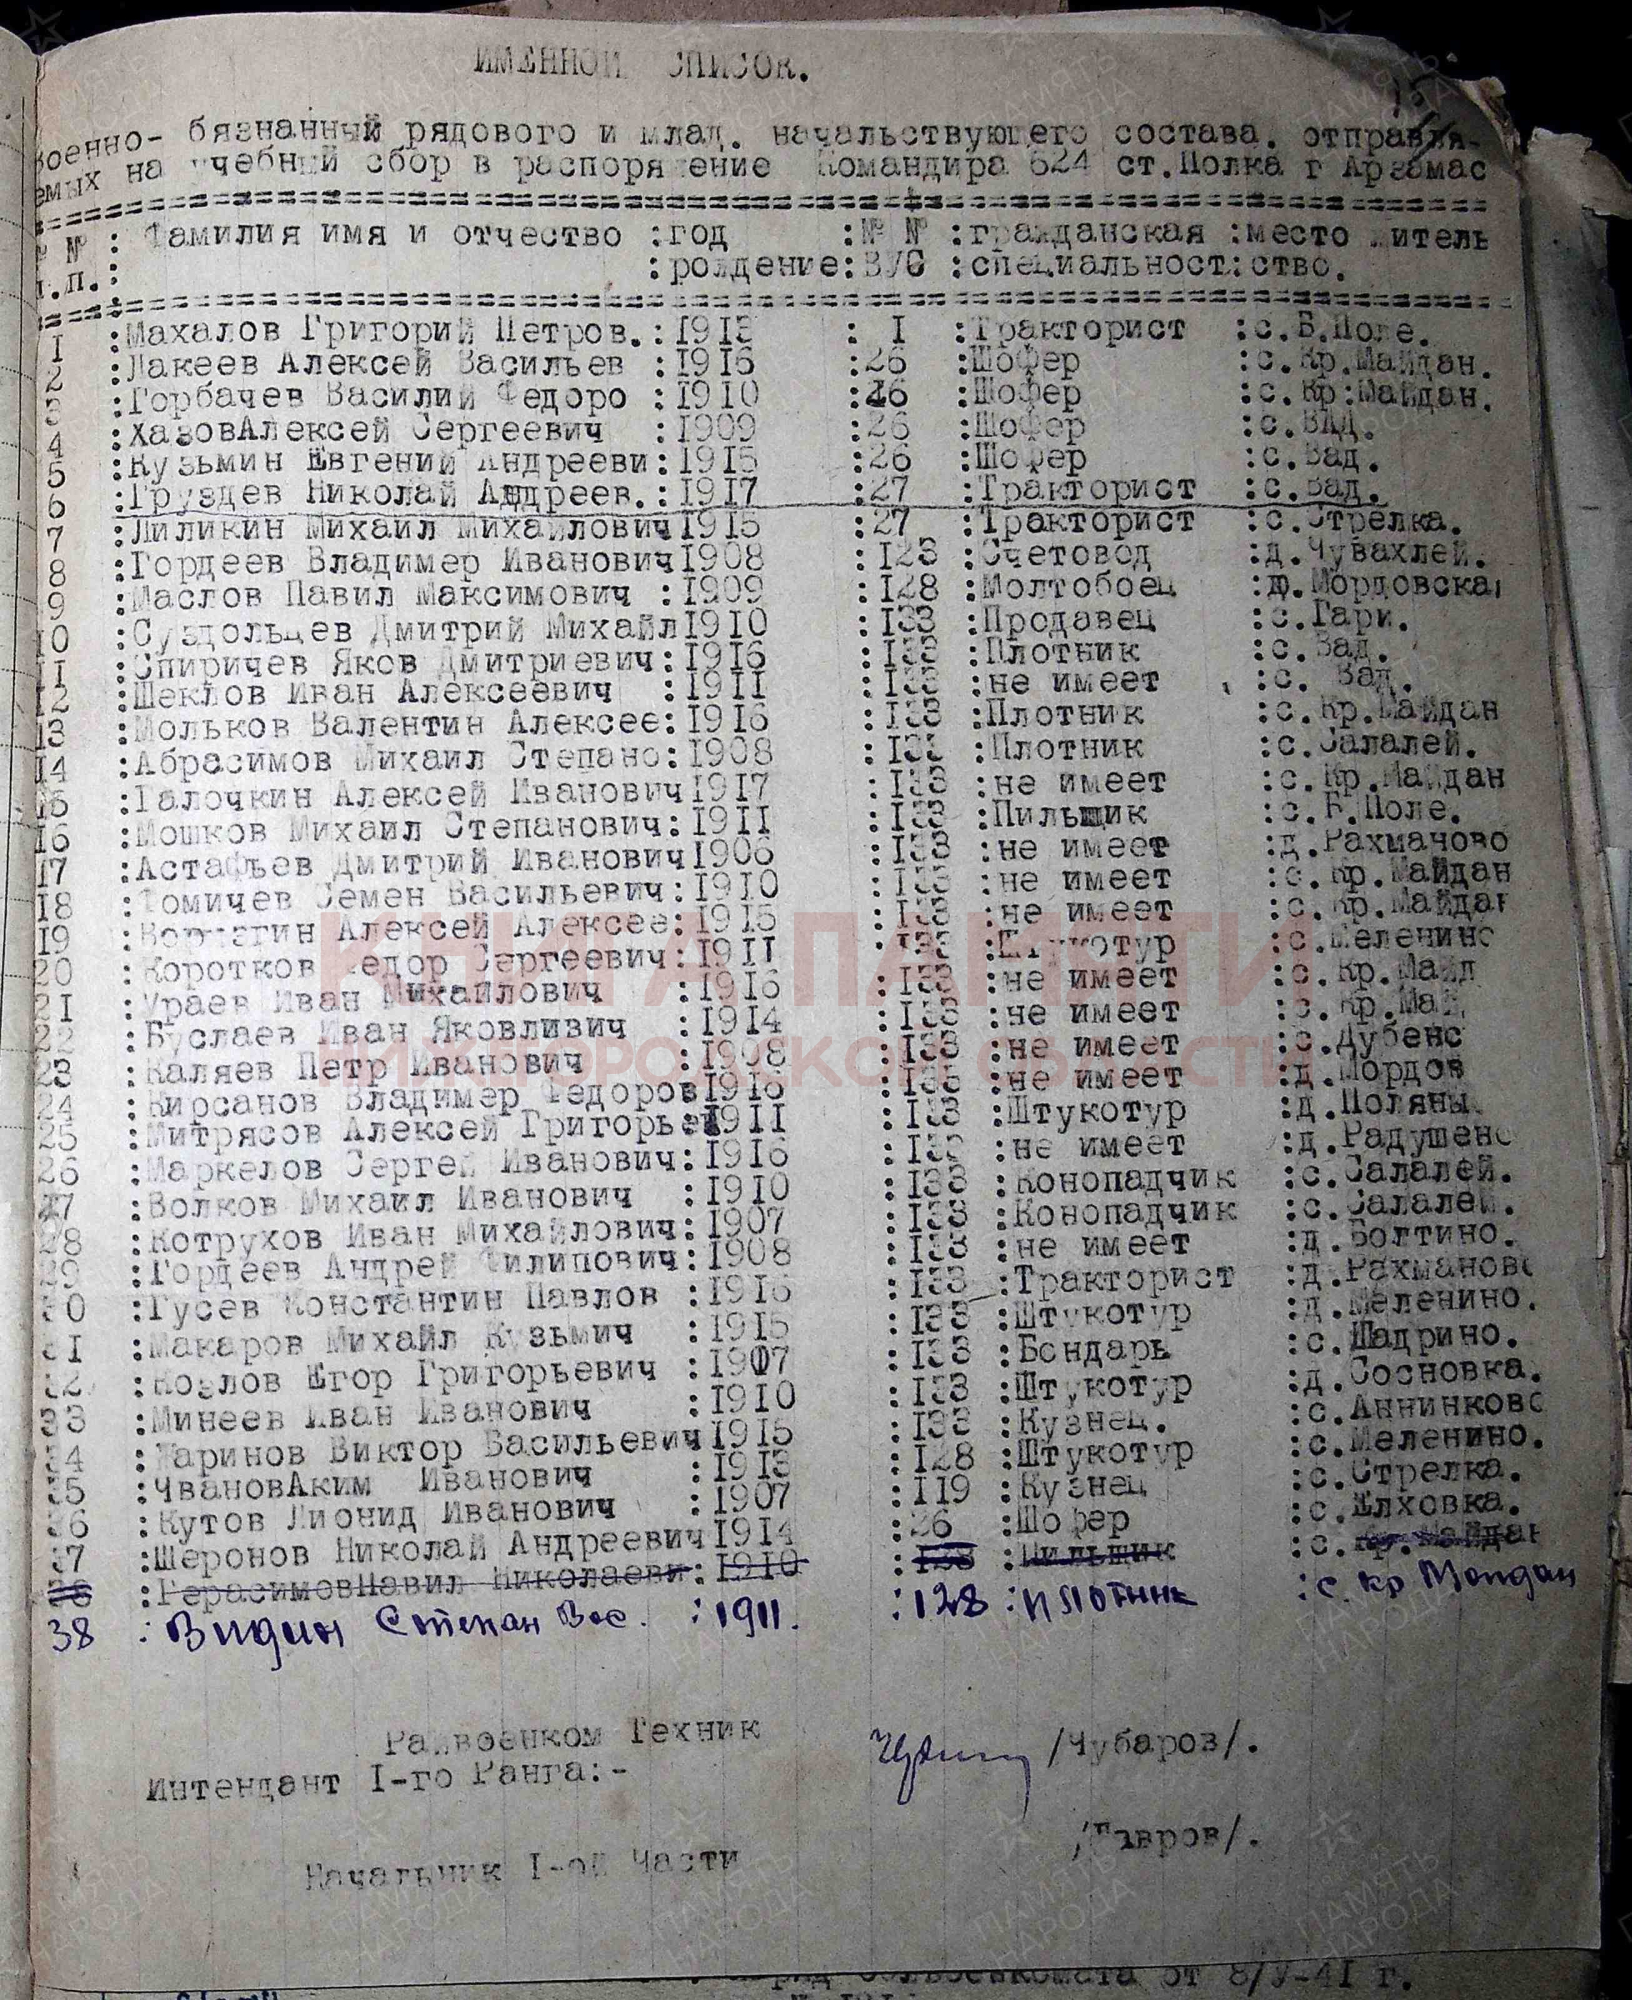 ИМЕННОЙ СПИСОК.
военно- бязнанный рядового и млад. начальствующего состава. отправля-
емых на учебный сбор в распоряжение Командира 624 ст.Полка г Арзамас
№ № : Фамилия имя и отчество :год :№ № :гражданская :место житель
п.п.: :рождение:ВУС :специальност:ство.
1 :Махалов Григорий Петров. :1913 : 1 :Тракторист :с.Б.Поле.
2 :Лакеев Алексей Васильев :1916 :26 :Шофер :с.Кр.Майдан.
3 :Горбачев Василий Федоро :1910 :26 :Шофер :с.Кр.Майдан.
4 :ХазовАлексей Сергеевич :1909 :26 :Шофер :с.ВАД.
5 :Кузьмин Евгений Андрееви:1915 :26 :Шофер :с.Вад.
6 :Груздев Николай Андреев. :1917 :27 :Тракторист :с.Вад.
7 :Лиликин Михаил Михайлович 1915 :27 :Тракторист :с.Стрелка.
8 :Гордеев Владимер Иванович 1908 :123 :Счетовод :д.Чувахлей.
9 :Маслов Павил Максимович :1909 :128 :Молтобоец :д.Мордовска
10 :Суздольцев Дмитрий Михайл 1910 :133 :Продавец :с.Гари.
11 :Спиричев Яков Дмитриевич:1916 :133 :Плотник :с.Вад.
12 :Шеклов Иван Алексеевич :1911 :133 :не имеет :с. Вад.
13 :Мольков Валентин Алексее:1916 :133 :Плотник :с.Кр.Майдан
14 :Абрасимов Михаил Степано:1908 :133 :Плотник :с.Салалей.
15 :Галочкин Алексей Иванович 1917 :133 :не имеет :с.Кр.Майдан
16 :Мошков Михаил Степанович:1911 :133 :Пильщик :с.Б.Поле.
17 :Астафьев Дмитрий Иванович 1906 :133 :не имеет :д.Рахманово
18 :Фомичев Семен Васильевич:1910 :133 :не имеет :с.Кр.Майдан
19 : Алексей Алексее:1915 :133 :не имеет :с.Кр.Майдан
20 :Коротков Федор Сергеевич:1911 :133 :Штукотур :с.Меленино
21 :Ураев Иван Михайлович :1916 :133 :не имеет :с.Кр.Майд
22 :Буслаев Иван Яковливич :1914 :133 :не имеет :с.Кр.Май
23 :Каляев Петр Иванович :1908 :133 :не имеет :с.Дубенс
24 :Кирсанов Владимер Федоров 1916 :133 :не имеет :д.Мордов
25 :Митрясов Алексей Григорьев 1911 :133 :Штукотур :д.Поляны.
26 :Маркелов Сергей Иванович:1916 :133 :не имеет :д.Радушено
27 :Волков Михаил Иванович :1910 :133 :Конопадчик :с.Салалей.
28 :Котрухов Иван Михайлович:1907 :133 :Конопадчик :с.Салалей.
29 :Гордеев Андрей Филипович:1908 :133 :не имеет :д.Болтино.
30 :Гусев Константин Павлов :1916 :133 :Тракторист :д.Рахманово
31 :Макаров Михайл Кузьмич :1915 :133 :Штукотур :д.Меленино.
32 :Козлов Егор Григорьевич :1907 :133 :Бондарь :с.Шадрино.
33 :Минеев Иван Иванович :1910 :133 :Штукотур :д.Сосновка.
34 :Гаринов Виктор Васильевич 1915 :133 :Кузнец. :с.Аннинково
35 :ЧвановАким Иванович :1913 :128 :Штукотур :с.Меленино.
36 :Кутов Лионид Иванович :1907 :119 :Кузнец :с.Стрелка.
37 :Шеронов Николай Андреевич 1914 :26 :Шофер :с.Елховка.
38 :ГерасимовПавил Николаеви:1910 :133 :Пильщик :с.Кр.Майдан
38 : Видин Степан Вас. : 1911. :128 :плотник :с кр Майдан
Райвоенком Техник
Интендант I-го Ранга:- /Чубаров/.
Начальник I-ой Части /Лавров/.
от 8/У-41 г.
КНИГА ПАМЯТИ
НИЖЕГОРОДСКОЙ ОБЛАСТИ
ПАМЯТЬ НАРОДА